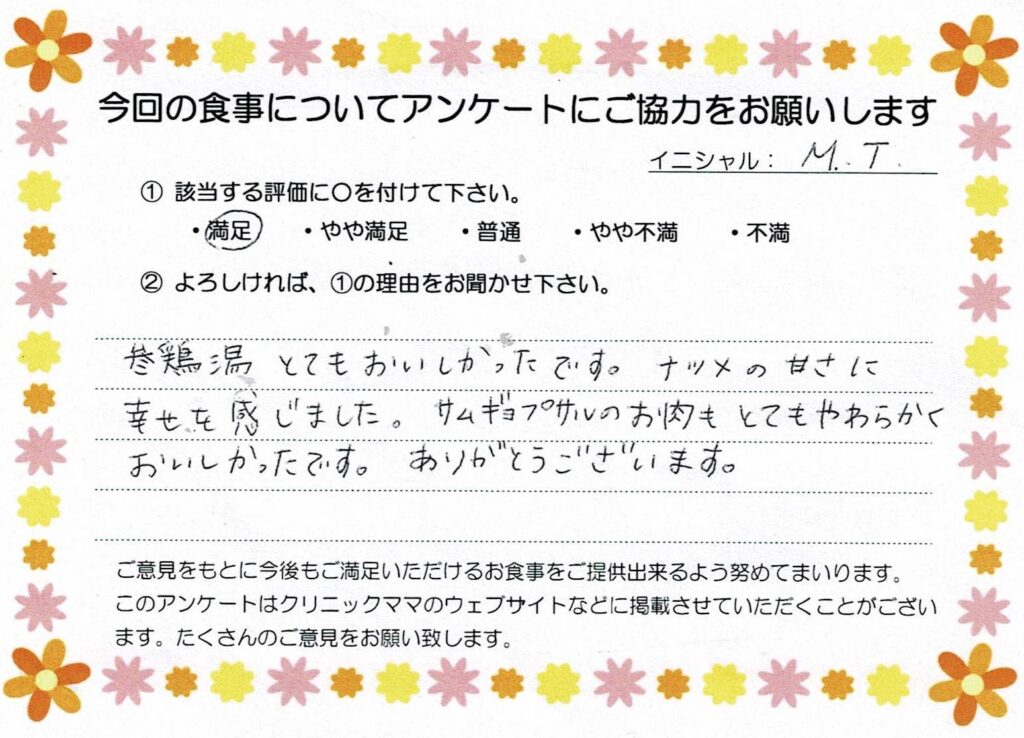 今回の食事についてアンケートにご協力をお願いします
イニシャル： M.T.
① 該当する評価に〇を付けて下さい。
・満足 ・やや満足 ・普通 ・やや不満 ・不満
② よろしければ、①の理由をお聞かせ下さい。
参鶏湯 とてもおいしかったです。 ナツメの甘さに
幸せを感じました。 サムギョプサルのお肉も とてもやわらかく
おいしかったです。 ありがとうございます。
ご意見をもとに今後もご満足いただけるお食事をご提供出来るよう努めてまいります。
このアンケートはクリニックママのウェブサイトなどに掲載させていただくことがござい
ます。たくさんのご意見をお願い致します。